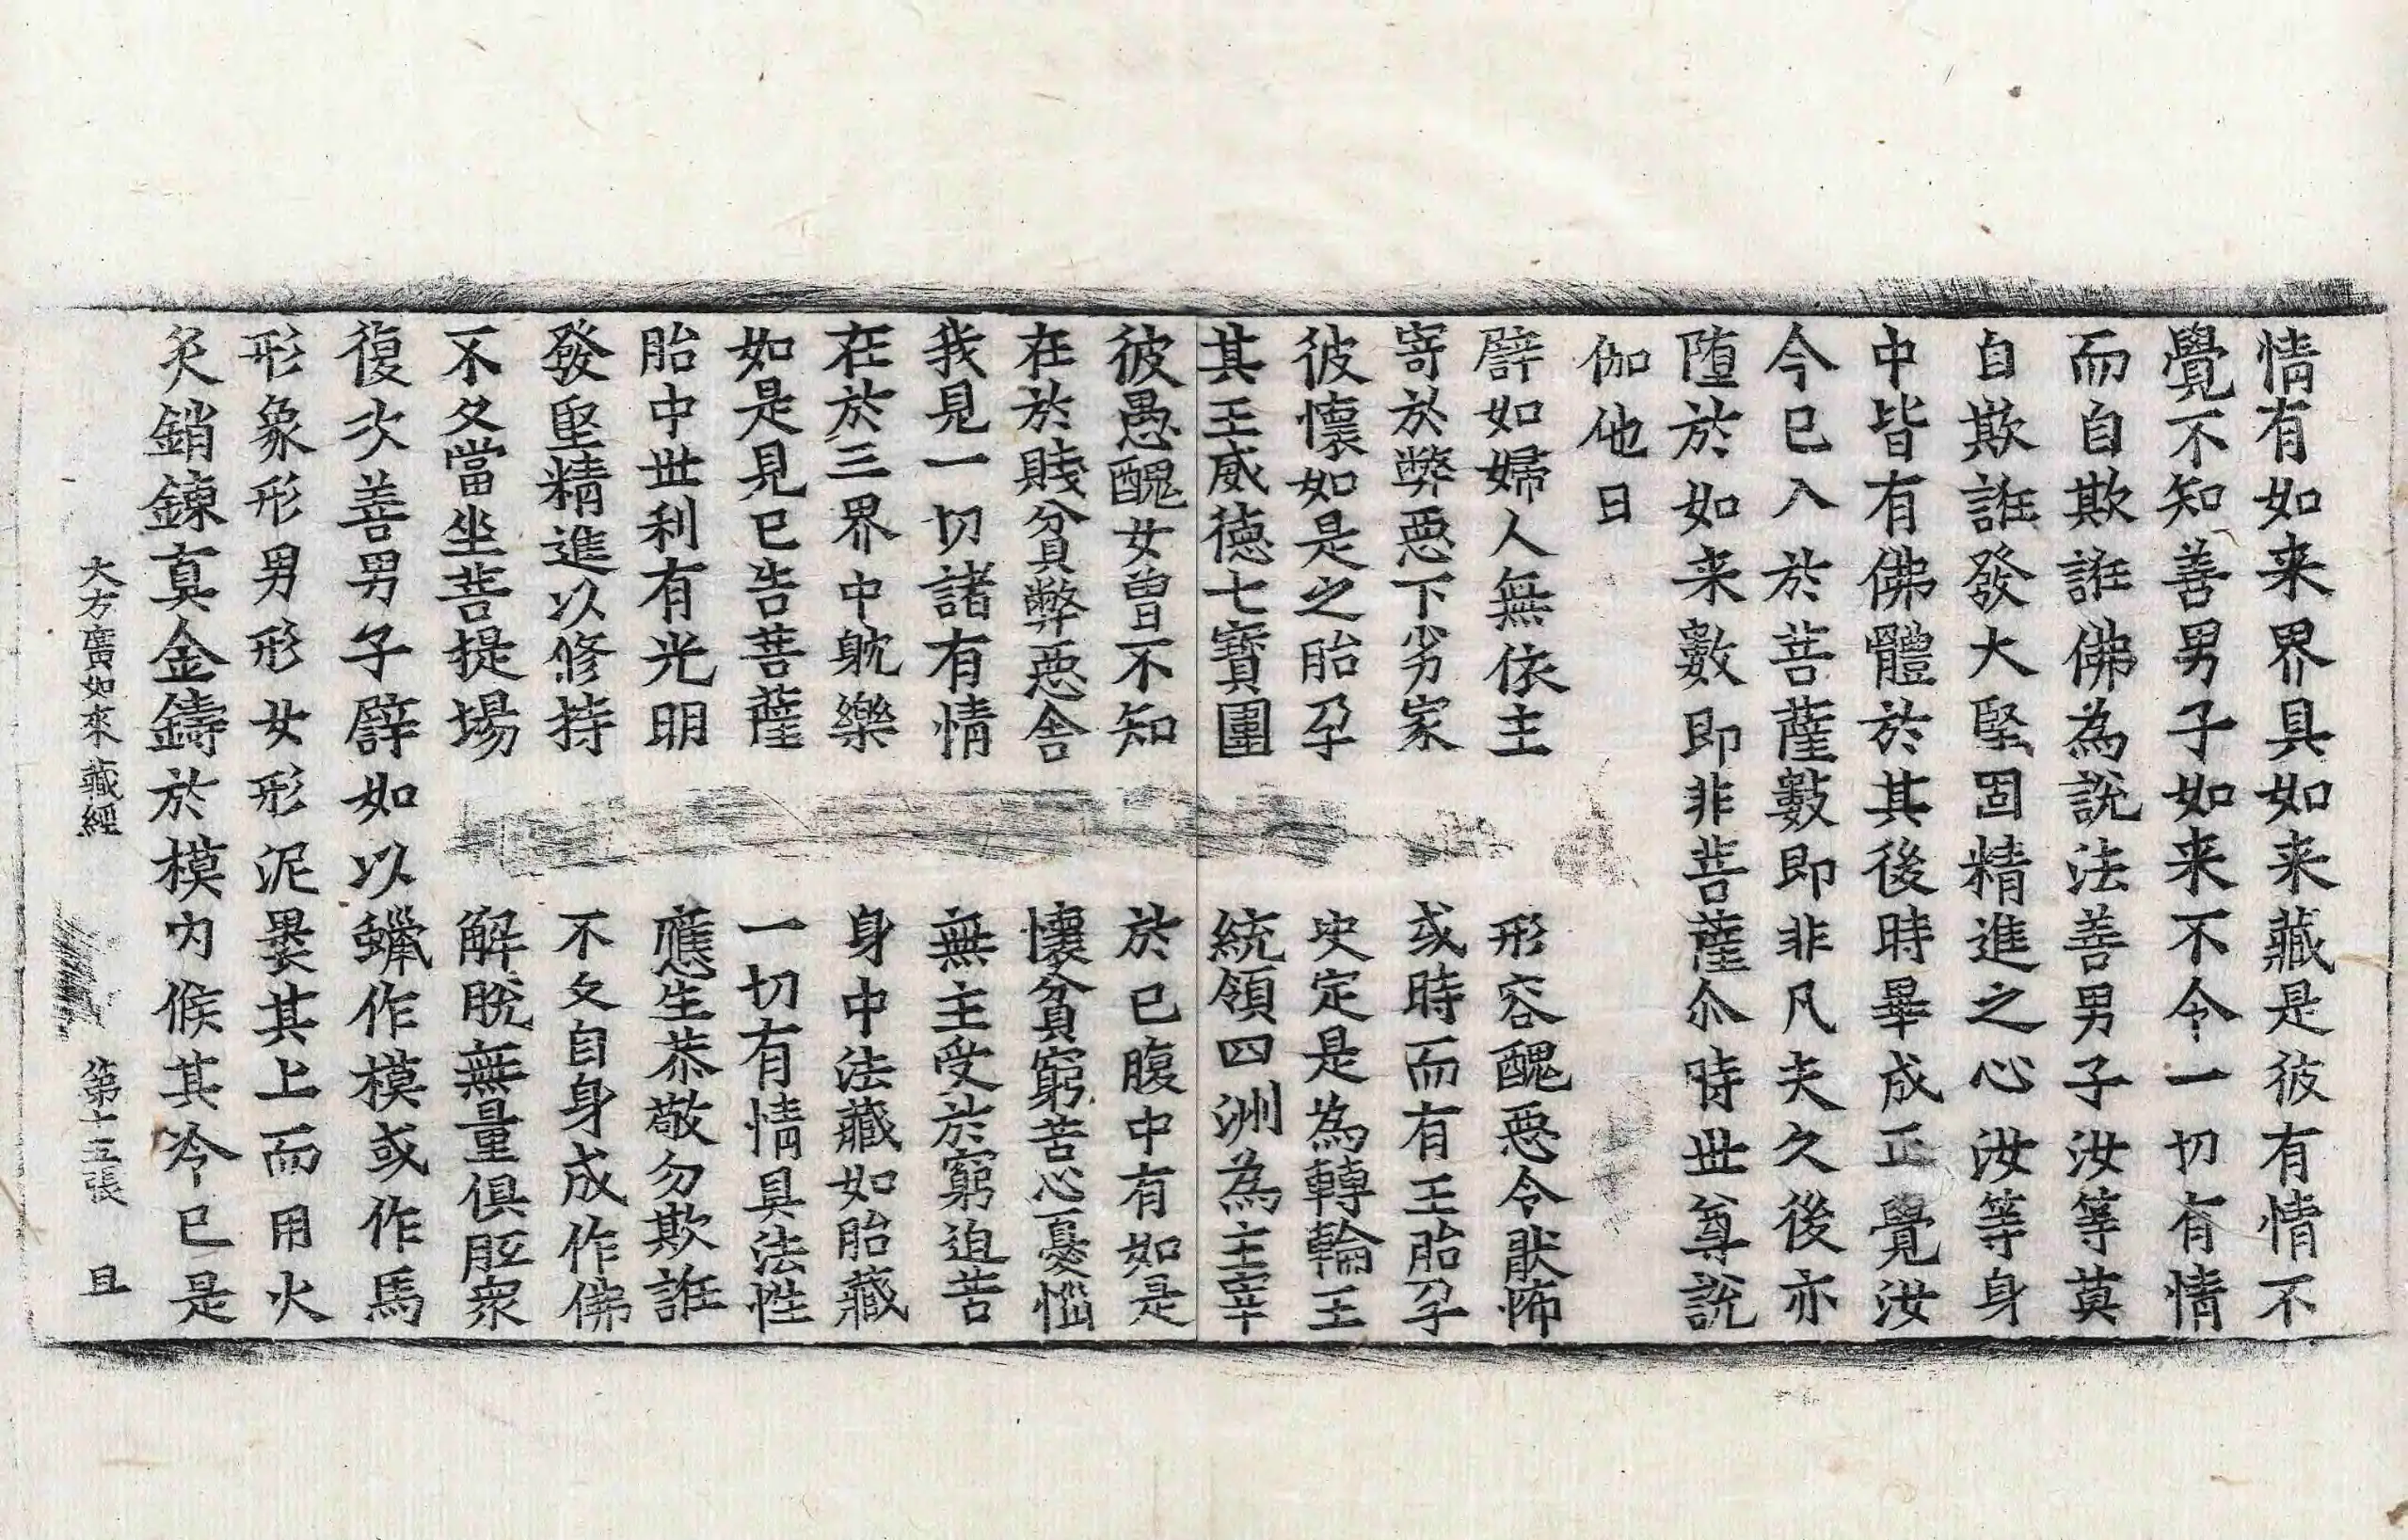 情有如来界具如来藏是彼有情不
覺不知善男子如来不令一切有情
而自欺誑佛為說法善男子汝等莫
自欺誑發大堅固精進之心汝等身
中皆有佛體於其後時畢成正覺汝
今已入於菩薩數即非凡夫久後亦
墮於如来數即非菩薩尒時世尊說
伽他曰
譬如婦人無依主　形容醜惡令猒怖
寄於弊惡下劣家　或時而有王胎孕
彼懷如是之胎孕　决定是為轉輪王
其王威德七寶圍　統領四洲為主宰
彼愚醜女曾不知　於已腹中有如是
在於賎貧弊惡舍　懷貧窮苦心憂惱
我見一切諸有情　無主受於窮迫苦
在於三界中躭樂　身中法藏如胎藏
如是見已告菩薩　一切有情具法性
胎中世利有光明　應生恭敬勿欺誑
發堅精進以修持　不久自身成作佛
不久當坐菩提場　解脫無量俱胝衆
復次善男子譬如以蠟作模或作馬
形象形男形女形泥褁其上而用火
炙銷鍊真金鑄於模内候其冷已是
大方廣如來藏經　第十五張　且